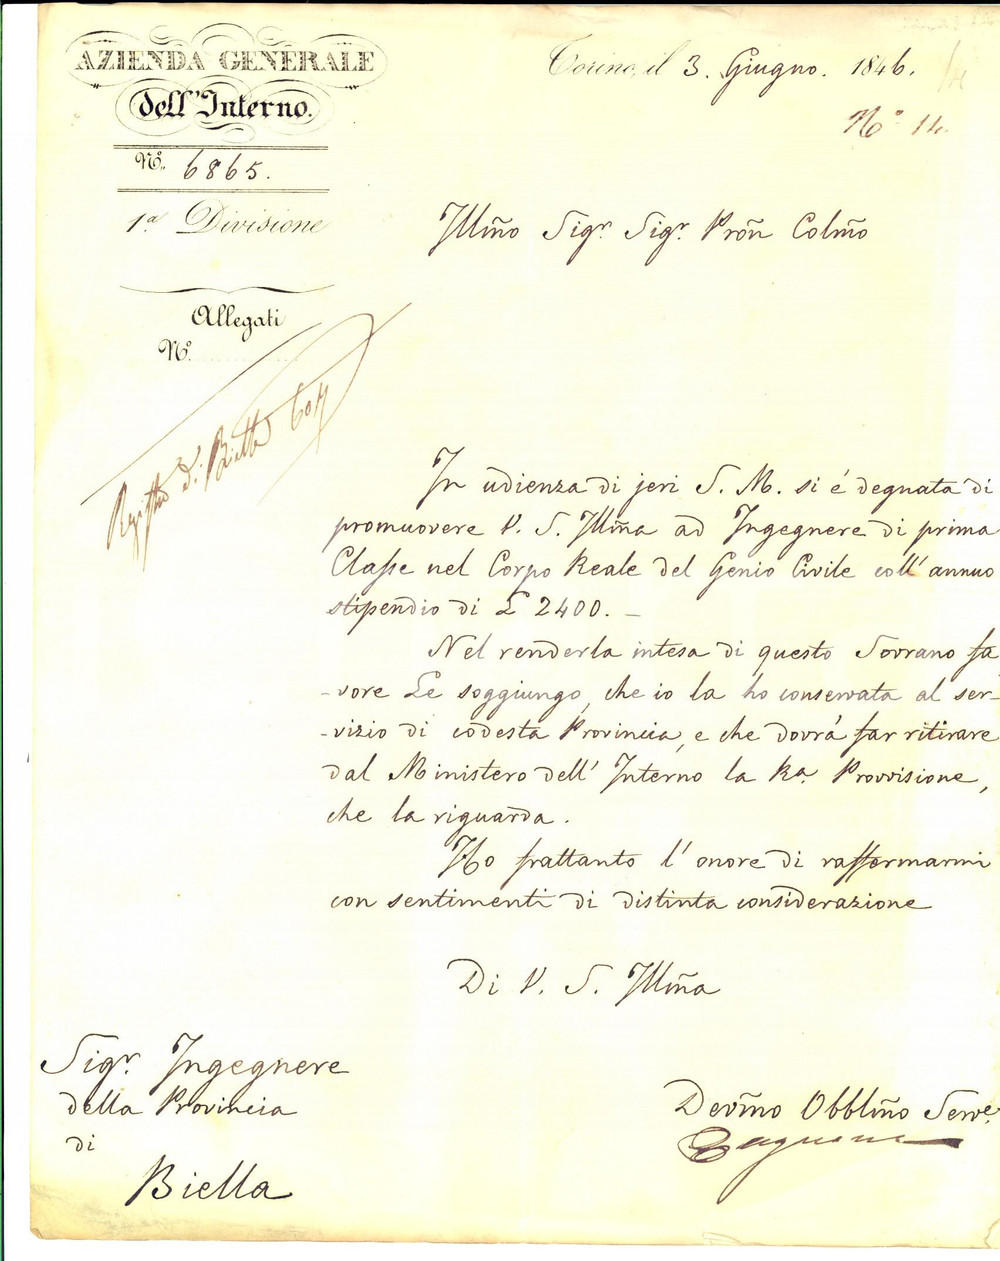 AZIENDA GENERALE
dell'Interno.
N.° 6865.
1.a Divisione
Allegati
N.°
Torino, il 3. Giugno. 1846.
N.° 14.
Illm̃o Sig.r Sig.r Pr̃on Colm̃o
Registro di Biella
In udienza di jeri S. M. si é degnata di
promuovere V. S. Illm̃a ad Ingegnere di prima
Classe nel Corpo Reale del Genio Civile coll' annuo
stipendio di £ 2400. _
Nel renderla intesa di questo Sovrano fa
-vore Le soggiungo, che io la ho conservata al ser-
-vizio di codesta Provincia, e che dovrá far ritirare
dal Ministero dell' Interno la R.a Provvisione,
che la riguarda.
Ho frattanto l' onore di raffermarmi
con sentimenti di distinta considerazione
Di V. S. Illm̃a
Sig.r Ingegnere
della Provincia
di
Biella
Devm̃o Obblm̃o Serv.e